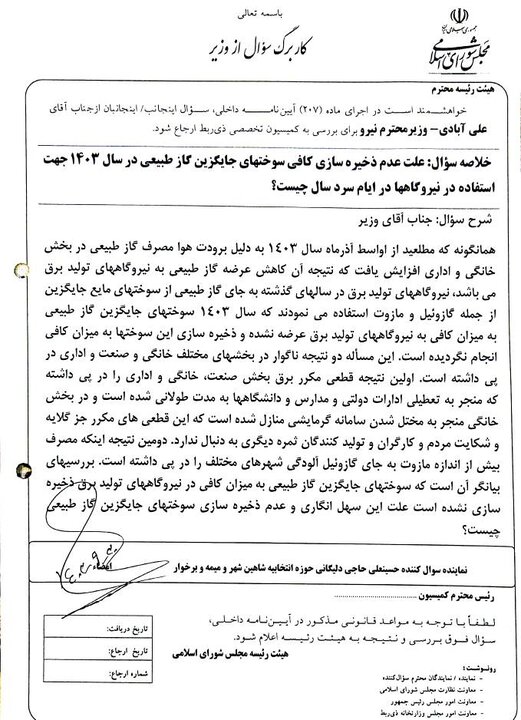 باسمه تعالی
جمهوری اسلامی ایران
مجلس شورای اسلامی
کاربرگ سؤال از وزیر
هیئت رئیسه محترم
خواهشمند است در اجرای ماده (۲۰۷) آیین‌نامه داخلی، سؤال اینجانب/ اینجانبان ازجناب آقای
علی آبادی– وزیرمحترم نیرو برای بررسی به کمیسیون تخصصی ذی‌ربط ارجاع شود.
خلاصه سؤال: علت عدم ذخیره سازی کافی سوختهای جایگزین گاز طبیعی در سال ۱۴۰۳ جهت
استفاده در نیروگاهها در ایام سرد سال چیست؟
شرح سؤال: جناب آقای وزیر
همانگونه که مطلعید از اواسط آذرماه سال ۱۴۰۳ به دلیل برودت هوا مصرف گاز طبیعی در بخش
خانگی و اداری افزایش یافت که نتیجه آن کاهش عرضه گاز طبیعی به نیروگاههای تولید برق
می باشد، نیروگاههای تولید برق در سالهای گذشته به جای گاز طبیعی از سوختهای مایع جایگزین
از جمله گازوئیل و مازوت استفاده می نمودند که سال ۱۴۰۳ سوختهای جایگزین گاز طبیعی
به میزان کافی به نیروگاههای تولید برق عرضه نشده و ذخیره سازی این سوختها به میزان کافی
انجام نگردیده است. این مسأله دو نتیجه ناگوار در بخشهای مختلف خانگی و صنعت و اداری در
پی داشته است. اولین نتیجه قطعی مکرر برق بخش صنعت، خانگی و اداری را در پی داشته
که منجر به تعطیلی ادارات دولتی و مدارس و دانشگاهها به مدت طولانی شده است و در بخش
خانگی منجر به مختل شدن سامانه گرمایشی منازل شده است که این قطعی های مکرر جز گلایه
و شکایت مردم و کارگران و تولید کنندگان ثمره دیگری به دنبال ندارد. دومین نتیجه اینکه مصرف
بیش از اندازه مازوت به جای گازوئیل آلودگی شهرهای مختلف را در پی داشته است. بررسیهای
بیانگر آن است که سوختهای جایگزین گاز طبیعی به میزان کافی در نیروگاههای تولید برق ذخیره
سازی نشده است علت این سهل انگاری و عدم ذخیره سازی سوختهای جایگزین گاز طبیعی
چیست؟
نماینده سوال کننده حسینعلی حاجی دلیگانی حوزه انتخابیه شاهین شهر و میمه و برخوار امضاء
رئیس محترم کمیسیون ..............................
لطفاً با توجه به مواعد قانونی مذکور در آیین‌نامه داخلی،
سؤال فوق بررسی و نتیجه به هیئت رئیسه اعلام شود.
هیئت رئیسه مجلس شورای اسلامی
تاریخ دریافت:
تاریخ ارجاع:
شماره ارجاع:
رونوشت:
– نماینده / نمایندگان محترم سؤال‌کننده
– معاونت نظارت مجلس شورای اسلامی
– معاونت امور مجلس رئیس جمهور
– معاونت امور مجلس وزارتخانه ذی‌ربط